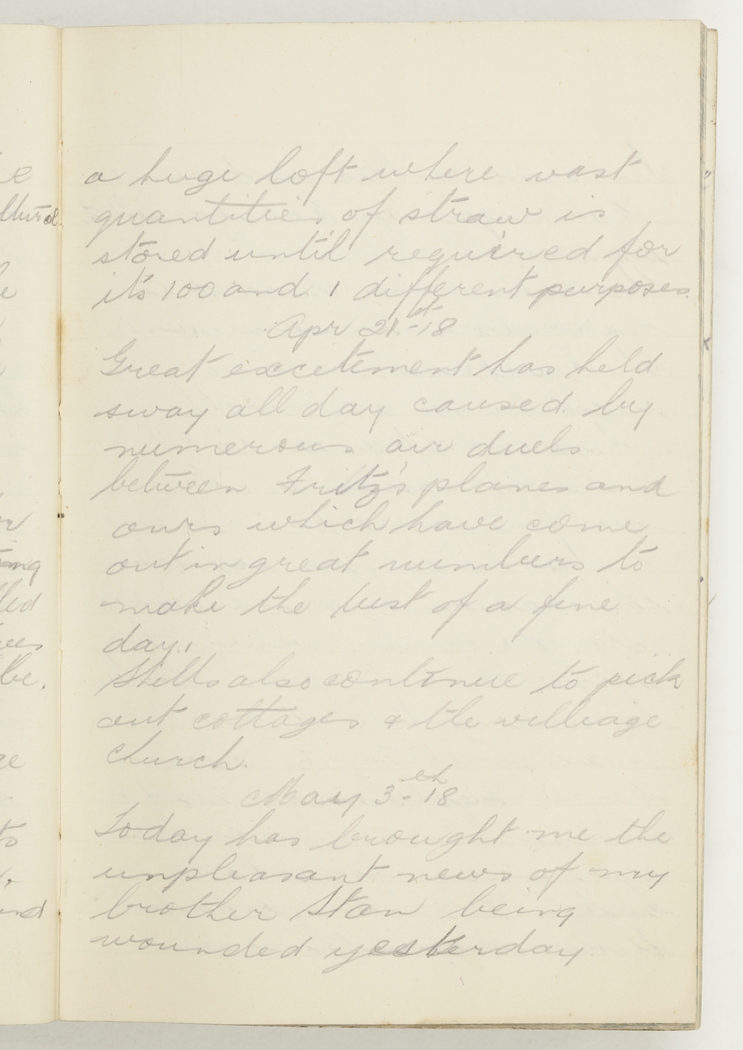 a huge loft where vast
quantities of straw is
stored until required for
it's 100 and 1 different purposes.
Apr 21.st-18
Great excitement has held
sway all day caused by
numerous air duels
between Fritz's planes and
ours which have come
out in great numbers to
make the best of a fine
day.
Shells also continue to pick
out cottages & the villiage
church.
May 3-th 18
Today has brought me the
unpleasant news of my
brother Stan being
wounded yesterday